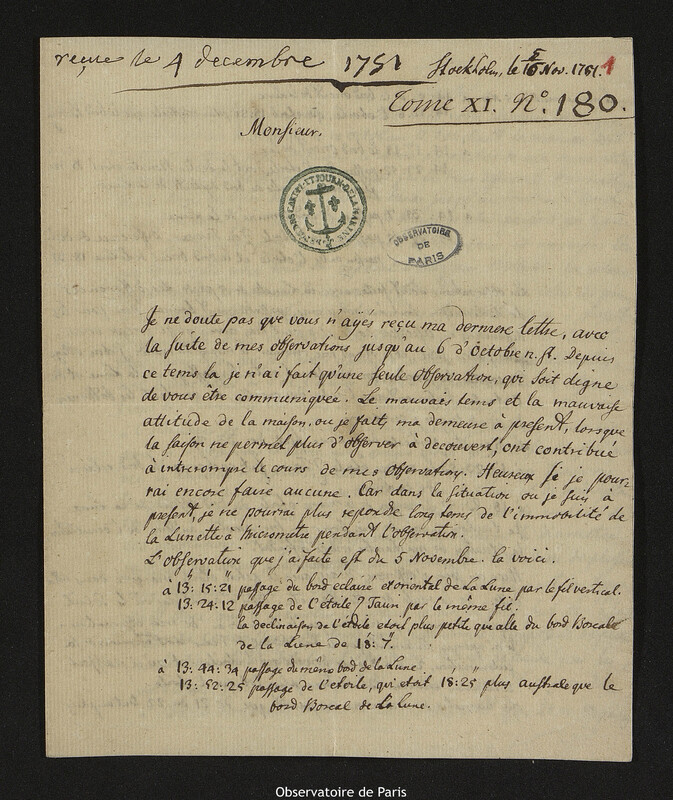 reçue le 4 decembre 1751
Stockholm, le 5/16 Nov. 1751. 1
Tome XI. N.º 180.
Monsieur.
OBSERVATOIRE
DE
PARIS
Je ne doute pas que vous n'ayés reçu ma derniere lettre, avec
la suite de mes observations jusqu'au 6 d'Octobre n. st. Depuis
ce tems la je n'ai fait qu'une seule observation, qui soit digne
de vous être communiquée. Le mauvais tems et la mauvaise
attitude de la maison, ou je faits ma demeure à present, lorsque
la saison ne permet plus d'observer à decouvert, ont contribué
à interrompre le cours de mes observations. Heureux si je pour-
rai encore faire aucune. Car dans la situation ou je suis à
present, je ne pourrai plus repondre long tems de l'immobilité de
la Lunette à Micrometre pendant l'observation.
L'observation que j'ai faite est du 5 Novembre. la voici.
à 13: 15: 21 passage du bord eclairé et oriental de La Lune par le fil vertical.
13: 24: 12 passage de l'étoile ? Tauri par le même fil.
la declinaison de l'etoile etoit plus petite que celle du bord Boreal
de la Lune de 18': 7".
à 13: 44: 34 passage du même bord de la Lune
13: 52: 25 passage de l'etoile, qui etoit 18': 25" plus australe que le
bord Boreal de La Lune.
Observatoire de Paris